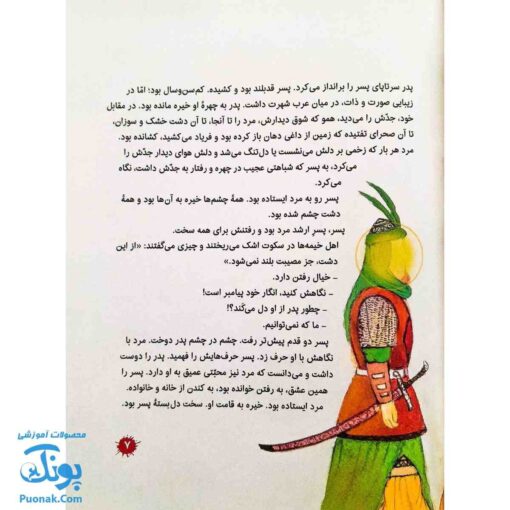 پدر سرتاپای پسر را برانداز می‌کرد. پسر قدبلند بود و کشیده. کم‌سن‌وسال بود؛ امّا در
زیبایی صورت و ذات، در میان عرب شهرت داشت. پدر به چهرهٔ او خیره مانده بود. در مقابل
خود، جدّش را می‌دید، همو که شوق دیدارش، مرد را تا آنجا، تا آن دشت خشک و سوزان،
تا آن صحرای تفتیده که زمین از داغی دهان باز کرده بود و فریاد می‌کشید، کشانده بود.
مرد هر بار که زخمی بر دلش می‌نشست یا دل‌تنگ می‌شد و دلش هوای دیدار جدّش را
می‌کرد، به پسر که شباهتی عجیب در چهره و رفتار به جدّش داشت، نگاه
می‌کرد.
پسر رو به مرد ایستاده بود. همهٔ چشم‌ها خیره به آن‌ها بود و همهٔ
دشت چشم شده بود.
پسر، پسرِ ارشد مرد بود و رفتنش برای همه سخت.
اهل خیمه‌ها در سکوت اشک می‌ریختند و چیزی می‌گفتند: «از این
دشت، جز مصیبت بلند نمی‌شود.»
- خیال رفتن دارد.
- نگاهش کنید، انگار خود پیامبر است!
- چطور پدر از او دل می‌کَند؟!
- ما که نمی‌توانیم.
پسر دو قدم پیش‌تر رفت. چشم در چشم پدر دوخت. مرد با
نگاهش با او حرف زد. پسر حرف‌هایش را فهمید. پدر را دوست
داشت و می‌دانست که مرد نیز محبّتی عمیق به او دارد. پسر را
همین عشق، به رفتن خوانده بود، به کندن از خانه و خانواده.
مرد ایستاده بود. خیره به قامت او. سخت دل‌بستهٔ پسر بود.
۷
محصولات آموزشی
پونک
Puonak.Com